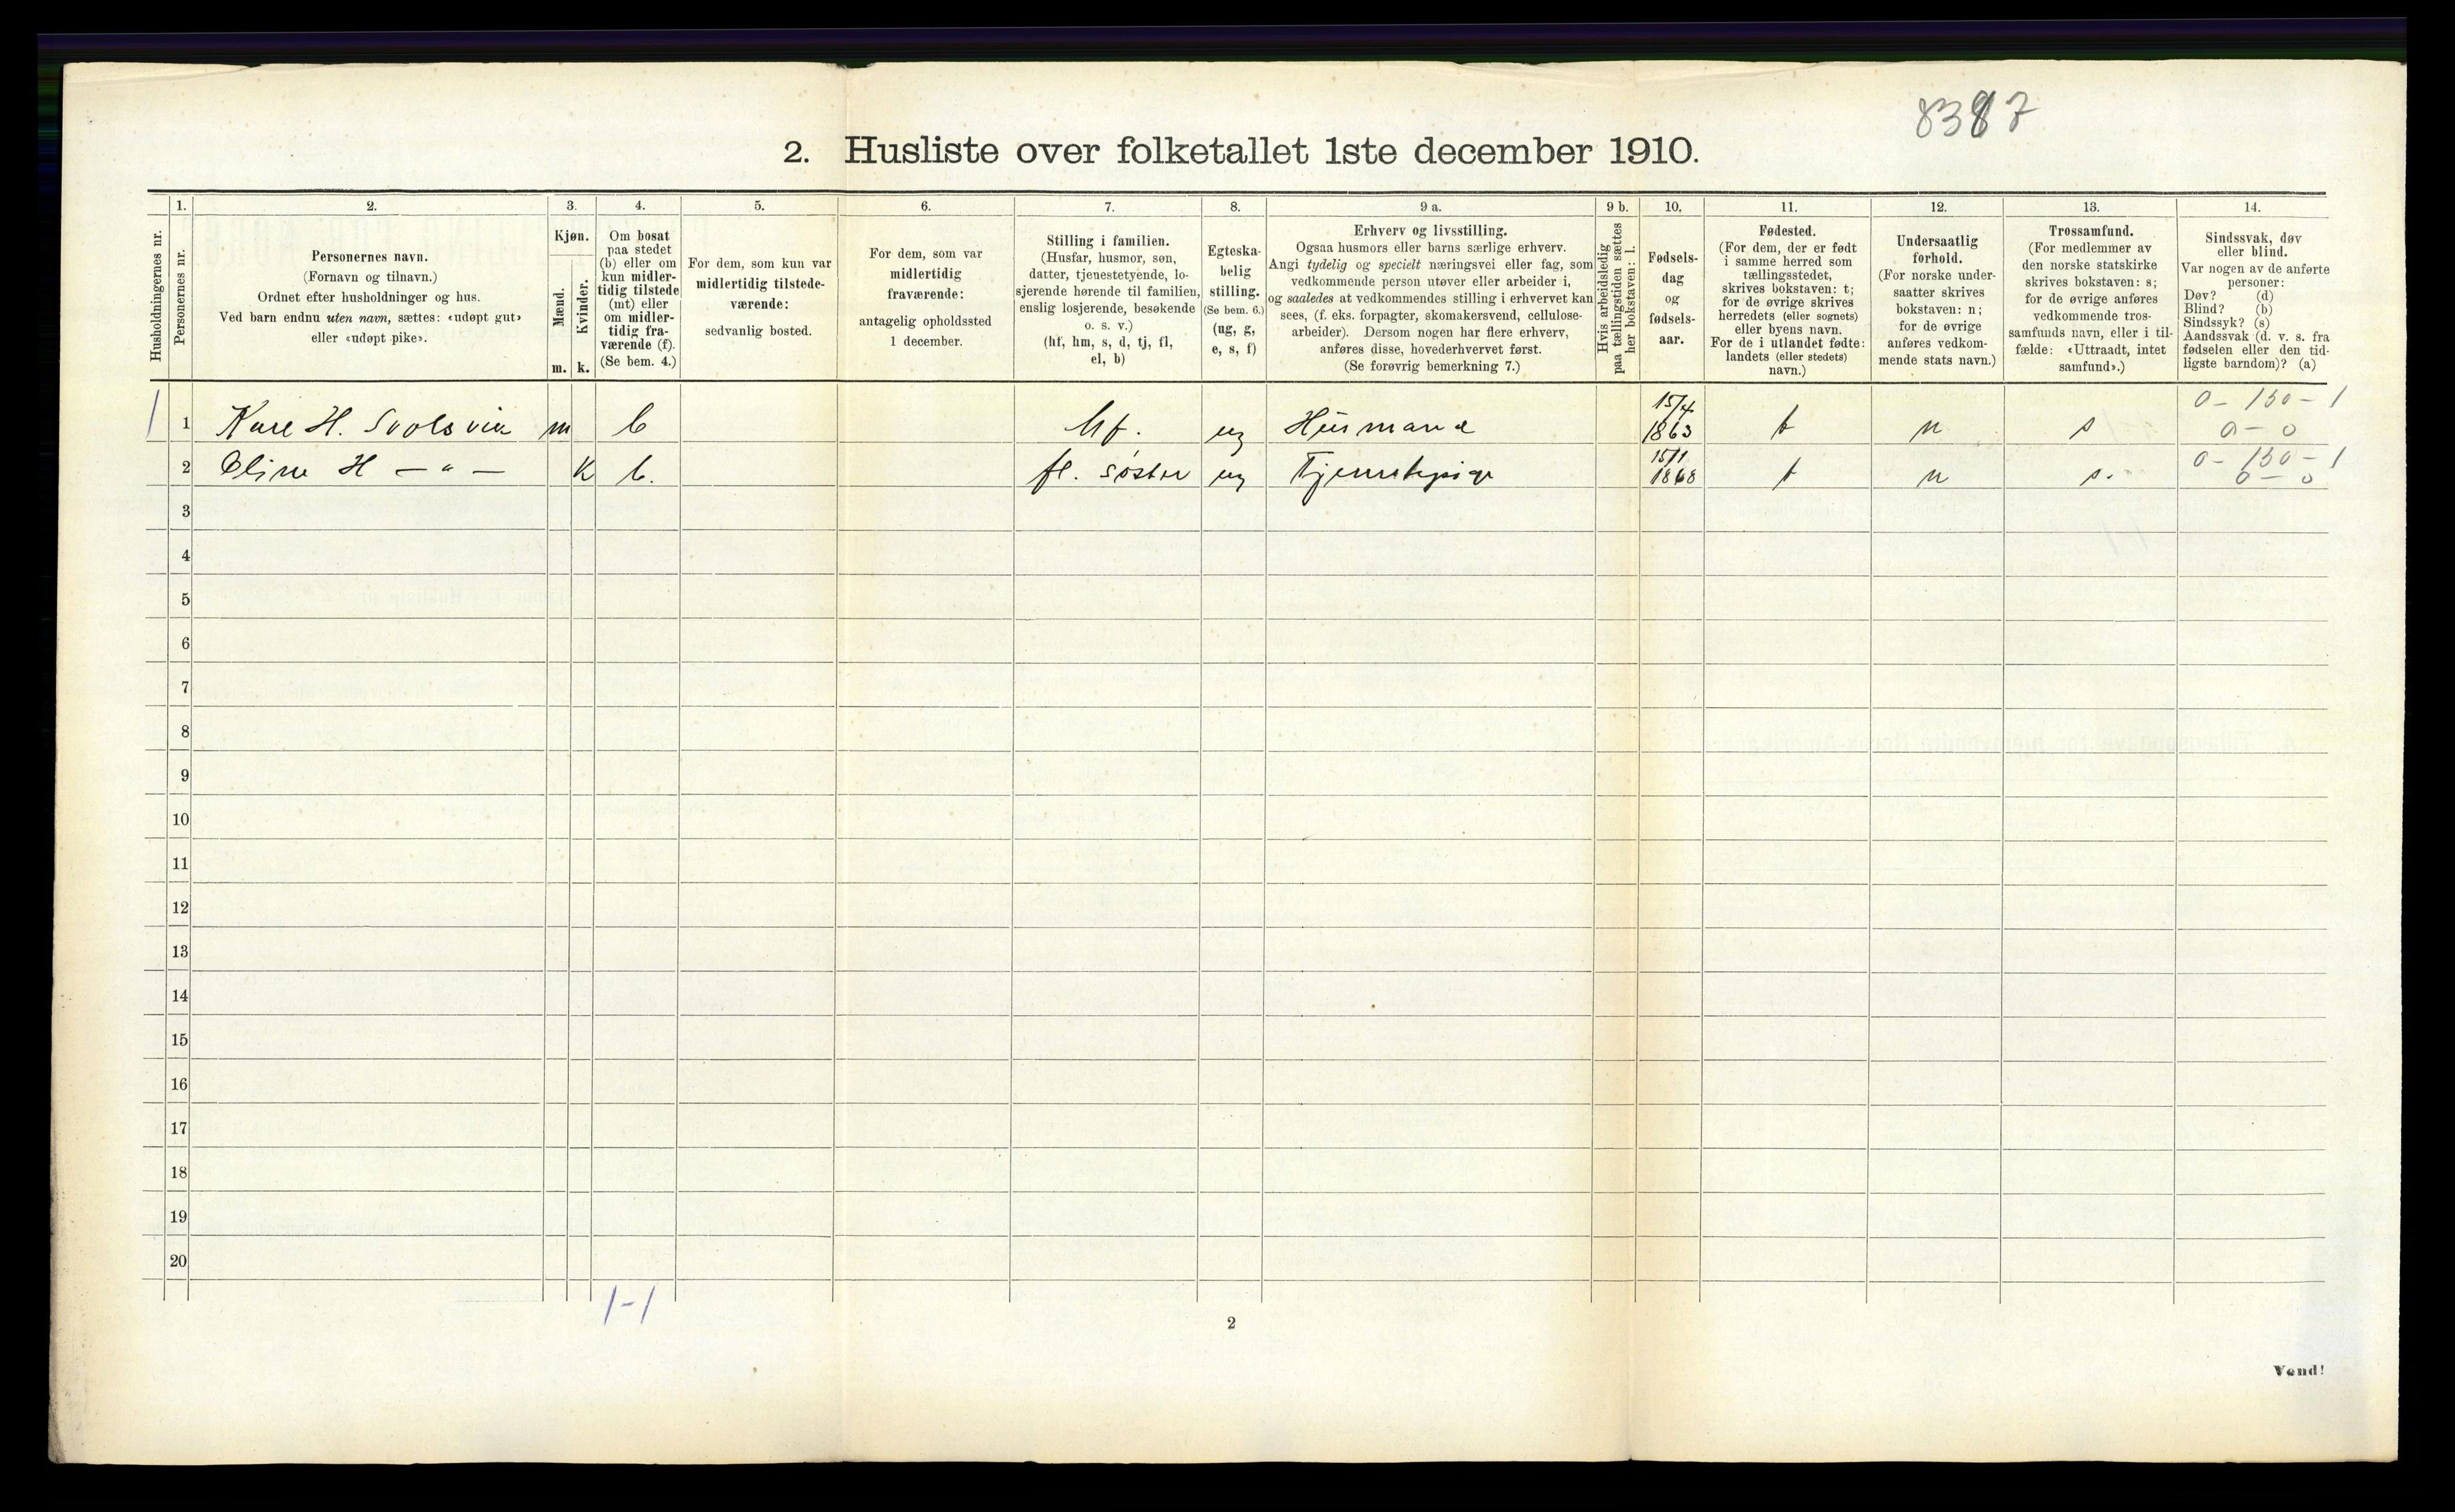 8387
2. Husliste over folketallet 1ste december 1910.
Husholdningernes nr.
1.
Personernes nr.
2.
Personernes navn.
(Fornavn og tilnavn.)
Ordnet efter husholdninger og hus.
Ved barn endnu uten navn, sættes: «udøpt gut»
eller «udøpt pike».
3.
Kjøn.
Mænd.
Kvinder.
m. k.
4.
Om bosat
paa stedet
(b) eller om
kun midler-
tidig tilstede
(mt) eller
om midler-
tidig fra-
værende (f).
(Se bem. 4.)
5.
For dem, som kun var
midlertidig tilstede-
værende:
sedvanlig bosted.
6.
For dem, som var
midlertidig
fraværende:
antagelig opholdssted
1 december.
7.
Stilling i familien.
(Husfar, husmor, søn,
datter, tjenestetyende, lo-
sjerende hørende til familien,
enslig losjerende, besøkende
o. s. v.)
(hf, hm, s, d, tj, fl,
el, b)
8.
Egteska-
belig
stilling.
(Se bem. 6.)
(ug, g,
e, s, f)
9 a.
Erhverv og livsstilling.
Ogsaa husmors eller barns særlige erhverv.
Angi tydelig og specielt næringsvei eller fag, som
vedkommende person utøver eller arbeider i,
og saaledes at vedkommendes stilling i erhvervet kan
sees, (f. eks. forpagter, skomakersvend, cellulose-
arbeider). Dersom nogen har flere erhverv,
anføres disse, hovederhvervet først.
(Se forøvrig bemerkning 7.)
9 b.
Hvis arbeidsledig
paa tællingstiden sættes
her bokstaven: l.
10.
Fødsels-
dag
og
fødsels-
aar.
11.
Fødested.
(For dem, der er født
i samme herred som
tællingsstedet,
skrives bokstaven: t;
for de øvrige skrives
herredets (eller sognets)
eller byens navn.
For de i utlandet fødte:
landets (eller stedets)
navn.)
12.
Undersaatlig
forhold.
(For norske under-
saatter skrives
bokstaven: n;
for de øvrige
anføres vedkom-
mende stats navn.)
13.
Trossamfund.
(For medlemmer av
den norske statskirke
skrives bokstaven: s;
for de øvrige anføres
vedkommende tros-
samfunds navn, eller i til-
fælde: «Uttraadt, intet
samfund».)
14.
Sindssvak, døv
eller blind.
Var nogen av de anførte
personer:
Døv? (d)
Blind? (b)
Sindssyk? (s)
Aandssvak (d. v. s. fra
fødselen eller den tid-
ligste barndom)? (a)
0 - 130 - 1
1 1 Kare H. Svolsvia m b hf. ug Husmand 15/4 1863 t n s 0 - 0
0 - 130 - 1
2 Eline H — " — k b. fl. søster ug Tjenestepige 15/1 1868 t n s. 0 - 0
3
4
5
6
7
8
9
10
11
12
13
14
15
16
17
18
19
20
1-1
2
Vend!